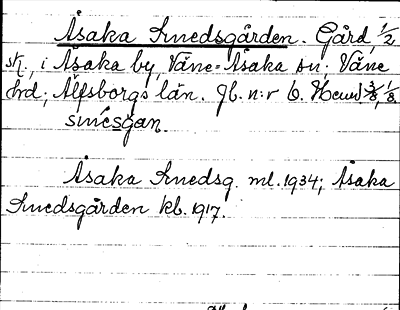 Åsaka Smedsgården. Gård, 1/2
sk., i Åsaka by, Väne-Åsaka sn, Väne
hd; Älfsborgs län. Jb. n:r 6. Hemd 3/8, 1/8.
smésgan.
Åsaka Smedsg. ml. 1934; Åsaka
Smedsgården kb. 1917.